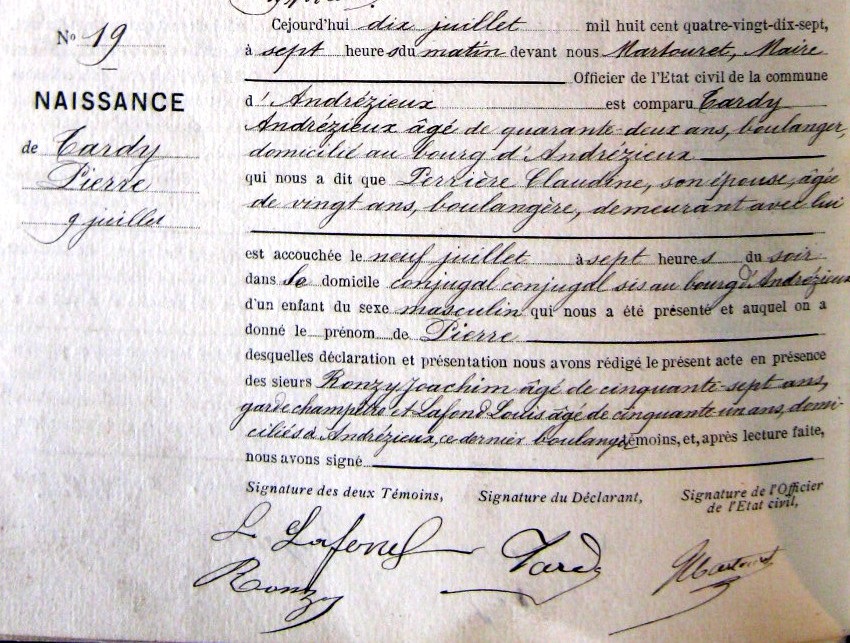 Nº 19
NAISSANCE
de Tardy
Pierre
9 juillet
Cejourd'hui dix juillet mil huit cent quatre-vingt-dix-sept,
à sept heures du matin devant nous Martouret, Maire
Officier de l'Etat civil de la commune
d'Andrézieux est comparu Tardy
Andrézieux âgé de quarante-deux ans, boulanger,
domicilié au bourg d'Andrézieux
qui nous a dit que Perrière Claudine, son épouse, âgée
de vingt ans, boulangère, demeurant avec lui
est accouchée le neuf juillet à sept heures du soir
dans le domicile conjugal conjugal sis au bourg d'Andrézieux
d'un enfant du sexe masculin qui nous a été présenté et auquel on a
donné le prénom de Pierre
desquelles déclaration et présentation nous avons rédigé le présent acte en présence
des sieurs Ronzy Joachim âgé de cinquante-sept ans,
garde champêtre et Lafond Louis âgé de cinquante un ans, domi-
ciliés à Andrézieux, ce dernier boulanger témoins, et, après lecture faite,
nous avons signé
Signature des deux Témoins, Signature du Déclarant, Signature de l'Officier
de l'Etat civil,
L Lafond Tardy Martouret
Ronzy